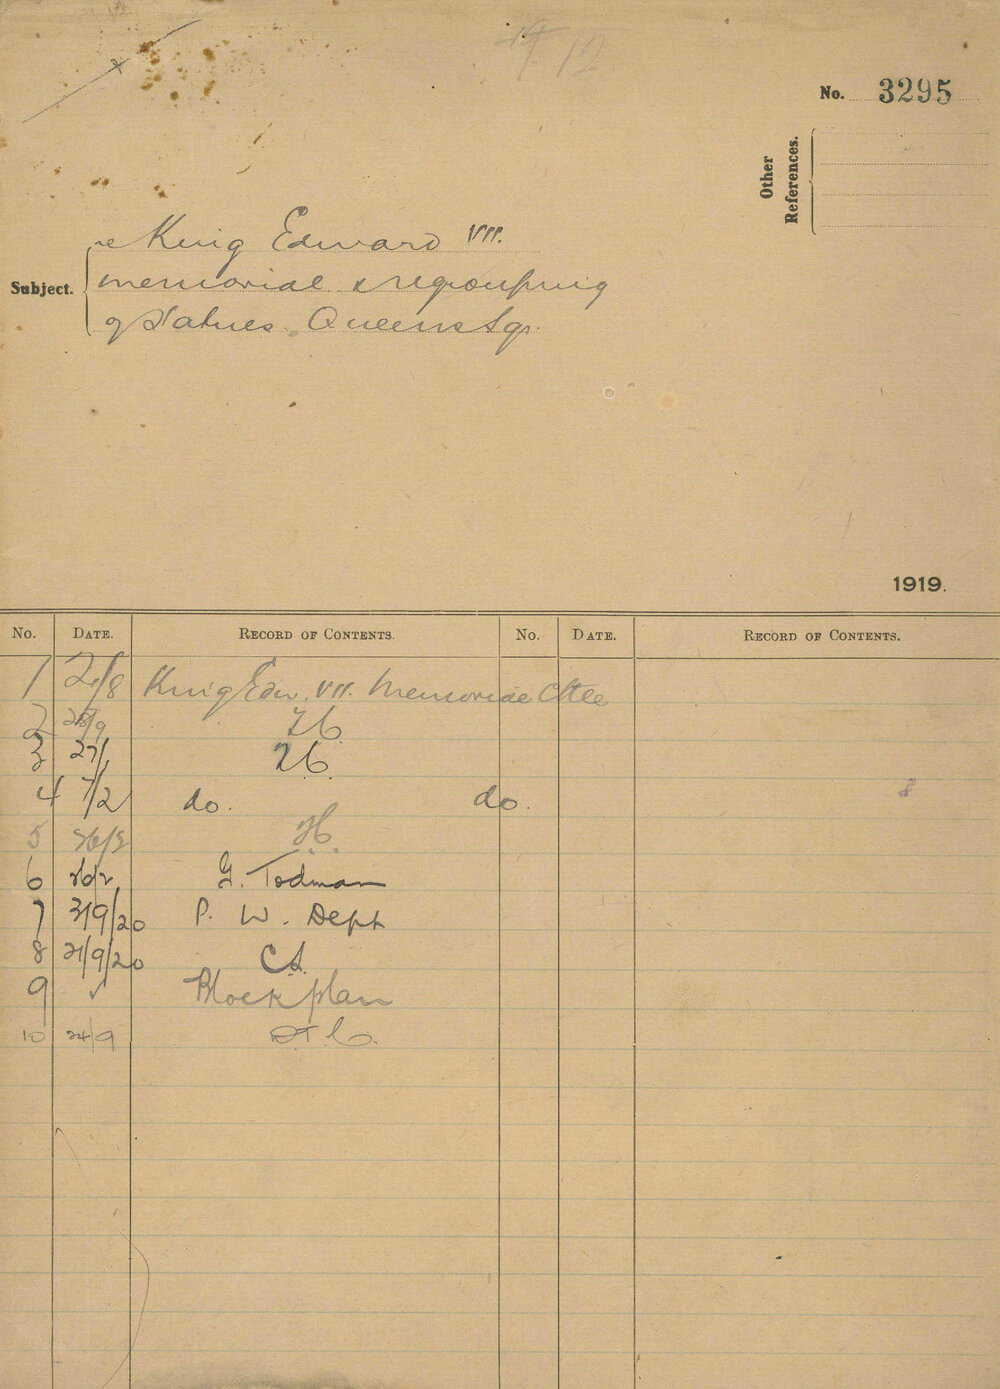 No. 3295
Other
References.
Subject.
re King Edward VII.
memorial & regrouping
of Statues. Queens Sq.
1919.
No. DATE. RECORD OF CONTENTS. No. DATE. RECORD OF CONTENTS.
1 2/8 King Edw. VII. Memorial Cttee
2
3 27/
4 7/2 do. do.
5
6 G. Todman
7 3/9/20 P. W. Dept
8 21/9/20 C.A.
9 ✓ Block plan
10 24/9